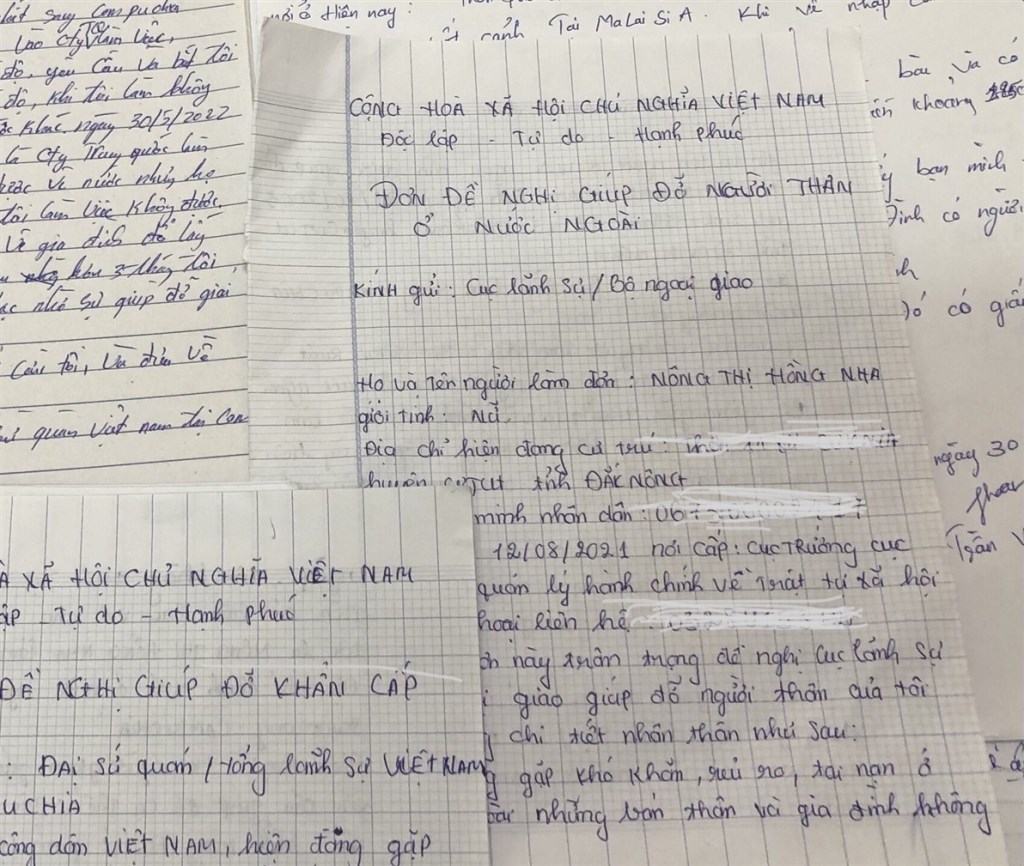 CỘNG HOÀ XÃ HỘI CHỦ NGHĨA VIỆT NAM
Độc lập - Tự do - Hạnh phúc
ĐƠN ĐỀ NGHỊ GIÚP ĐỠ NGƯỜI THÂN
Ở NƯỚC NGOÀI
Kính gửi: Cục lãnh sự / Bộ ngoại giao
Họ và tên người làm đơn: NÔNG THỊ HỒNG NHA
giới tính: NỮ
Địa chỉ hiện đang cư trú:
huyện CƯJUT tỉnh ĐẮK NÔNG
minh nhân dân: 067
12/08/2021 nơi cấp: CỤC TRƯỞNG cục
quản lý hành chính về trật tự xã hội
hoại liên hệ
này trân trọng đề nghị Cục lãnh sự
giao giúp đỡ người thân của tôi
chi tiết nhân thân như sau:
gặp khó khăn, rủi ro, tai nạn ở
những bản thân và gia đình không
À XÃ HỘI CHỦ NGHĨA VIỆT NAM
ập - Tự do - Hạnh phúc
ĐỀ NGHỊ GIÚP ĐỠ KHẨN CẤP
: ĐẠI sứ quán / Tổng lãnh sự VIỆT NAM
UCHIA
công dân VIỆT NAM, hiện đang gặp
sang Campuchia
vào cty làm việc,
đó, yêu cầu và bắt tôi
đó, khi tôi làm không
khác. ngày 30/5/2022
là cty Trung quốc
về nước nhưng họ
tôi làm việc không được,
về gia đình để lấy
hơn 3 tháng tôi,
nhờ sự giúp đỡ giải
của tôi, và đưa về
quán việt nam tại Cam
nơi ở hiện nay:
cảnh Tại MaLaiSiA. Khi về nhập
bài, và có
khoảng
bạn mình
Đình có người
có giấ
ngày 30
Trần V